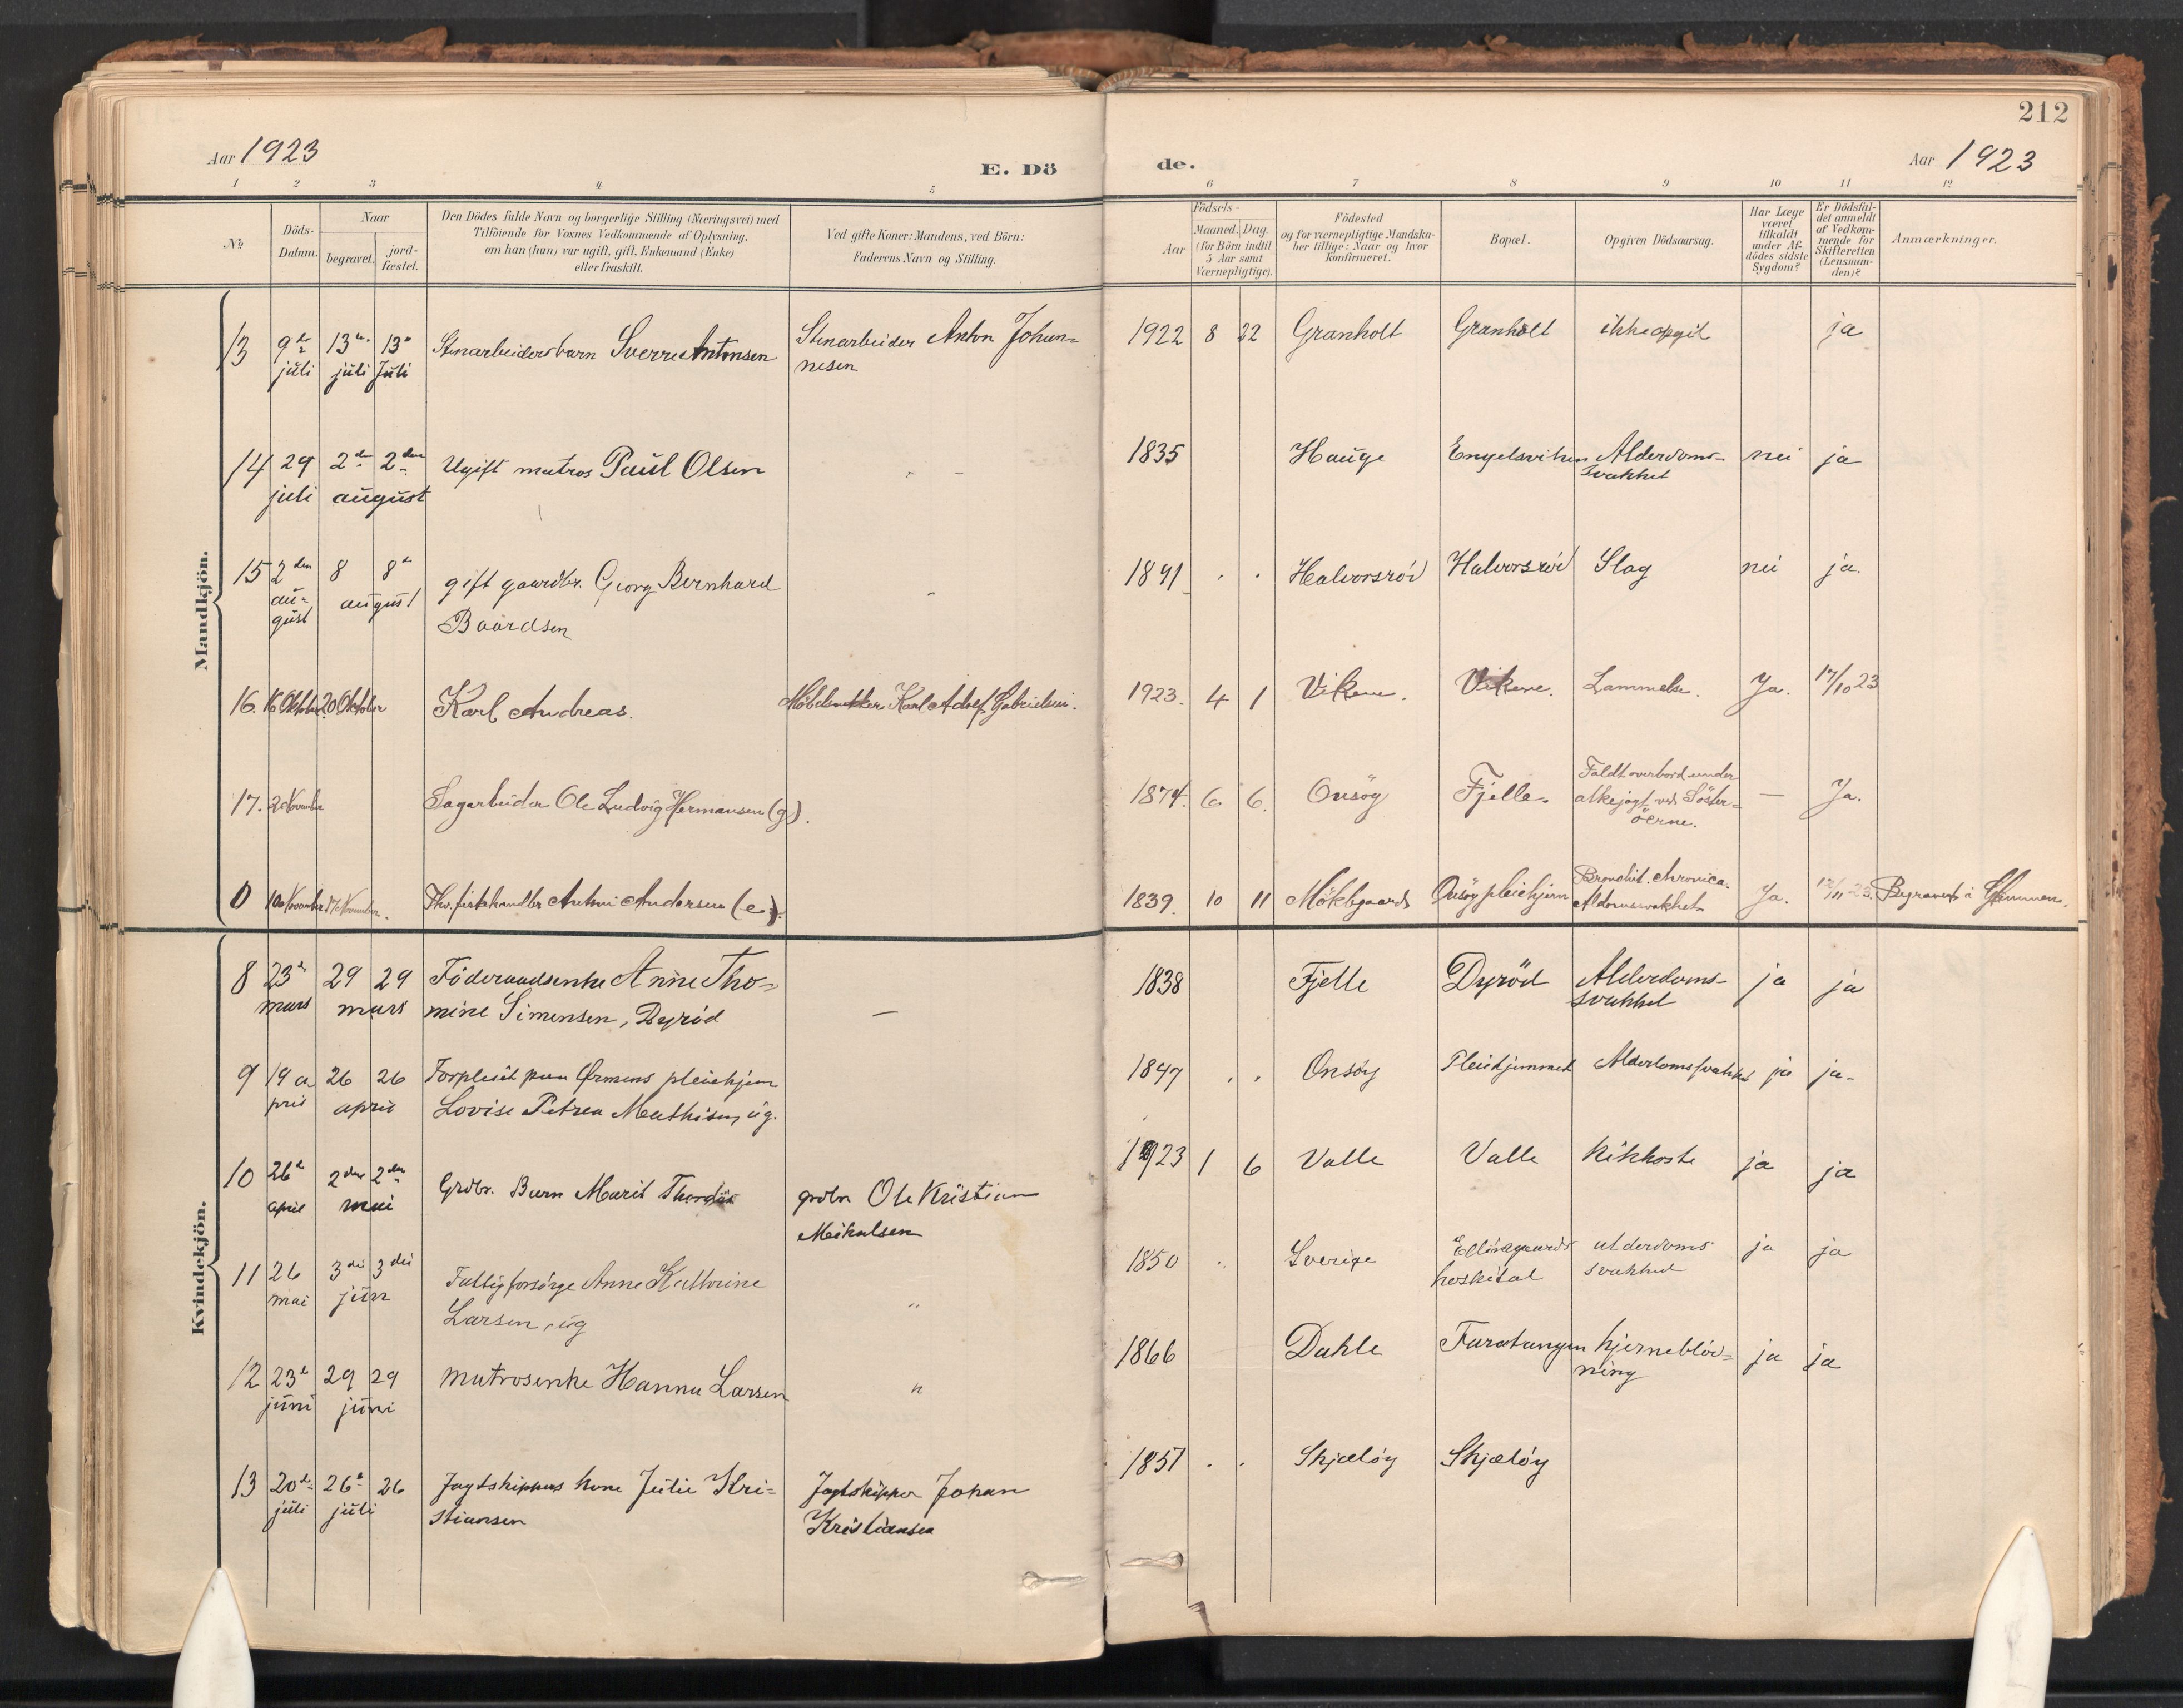 212
Aar 1923
E. Dö
de.
Aar 1923
1 2 3 4 5 6 7 8 9 10 11 12
No
Döds-Datum.
Naar
begravet.
jord-fæstet.
Den Dödes fulde Navn og borgerlige Stilling (Næringsvei) med
Tilföiende for Voxnes Vedkommende af Oplysning,
om han (hun) var ugift, gift, Enkemand (Enke)
eller fraskilt.
Ved gifte Koner: Mandens, ved Börn:
Faderens Navn og Stilling.
Födsels-
Aar
Maaned. Dag.
(for Börn indtil
5 Aar samt
Værnepligtige).
Födested
og for værnepligtige Mandska-
ber tillige: Naar og hvor
konfirmeret.
Bopæl.
Opgiven Dödsaarsag.
Har Læge
været
tilkaldt
under Af-
dödes sidste
Sygdom?
Er Dödsfal-
det anmeldt
af Vedkom-
mende for
Skifteretten
(Lensman-
den)?
Anmærkninger.
Mandkjön.
13 9de juli 13de juli 13de Juli Stenarbeidersbarn Sverre Antonsen Stenarbeider Anton Johan=
nesen
1922 8 22 Granholt Granholt ikke opgit ja
14 29 juli 2den 2den august Ugift matros Paul Olsen
1835 Hauge Engelsviken Alderdoms-
svakhet nei ja
15 2den au=
gust 8 8de august gift gaardbr. Georg Bernhard
Baardsen
1891 Halvorsröd Halvorsröd Slag nei ja.
16. 16 Oktober 20 Oktober Karl Andreas. Möbelsnekker Karl Adolf Gabrielsen.
1923. 4 1 Vikene. Vikene. Lammelse. Ja. 17/10 23
17. 2 November Sagarbeider Ole Ludvig Hermansen (g).
1874. 6. 6. Onsöy Fjelle. Faldt overbord under
alkejagt ved Söster=
öerne. — Ja.
0 10 November 17 November. Fhv. fiskehandler Anton Andersen (e).
1839. 10 11 Möklegaard Onsöy pleiehjem Bronchit. chronica.
Alderdomssvakhet Ja. 12/11 23. Begravet i Glemmen.
Kvindekjön.
8 23de mars 29 29 mars Föderaadsenke Anne Tho=
mine Simensen, Dyröd —
1838 Fjelle Dyröd Alderdoms-
svakhet ja ja
9 19 a
pril 26 26 april Forpleiet paa Ørmens pleiehjem
Lovise Petrea Mathisen, ug.
1847 Onsöy Pleiehjemmet Alderdomssvakhet ja ja-
10 26de april 2den 2den mai Grdbr. Barn Marit Thordis grdbr Ole Kristian
Mikalsen
1923 1 6 Valle Valle kikhoste ja ja
11 26 mai 3die 3die juni Fattigforsörge Anne Kathrine
Larsen, ug "
1850 Sverige
hospital alderdoms
svakhet ja ja
12 23de juni 29 29 juni Matrosenke Hanna Larsen "
1866 Dahle Furutangen hjerneblöd=
ning ja ja
13 20de juli 26de 26 juli Jagtskippers kone Julie Kri=
stiansen Jagtskipper Johan
Kristiansen
1851 Skjælöy Skjælöy